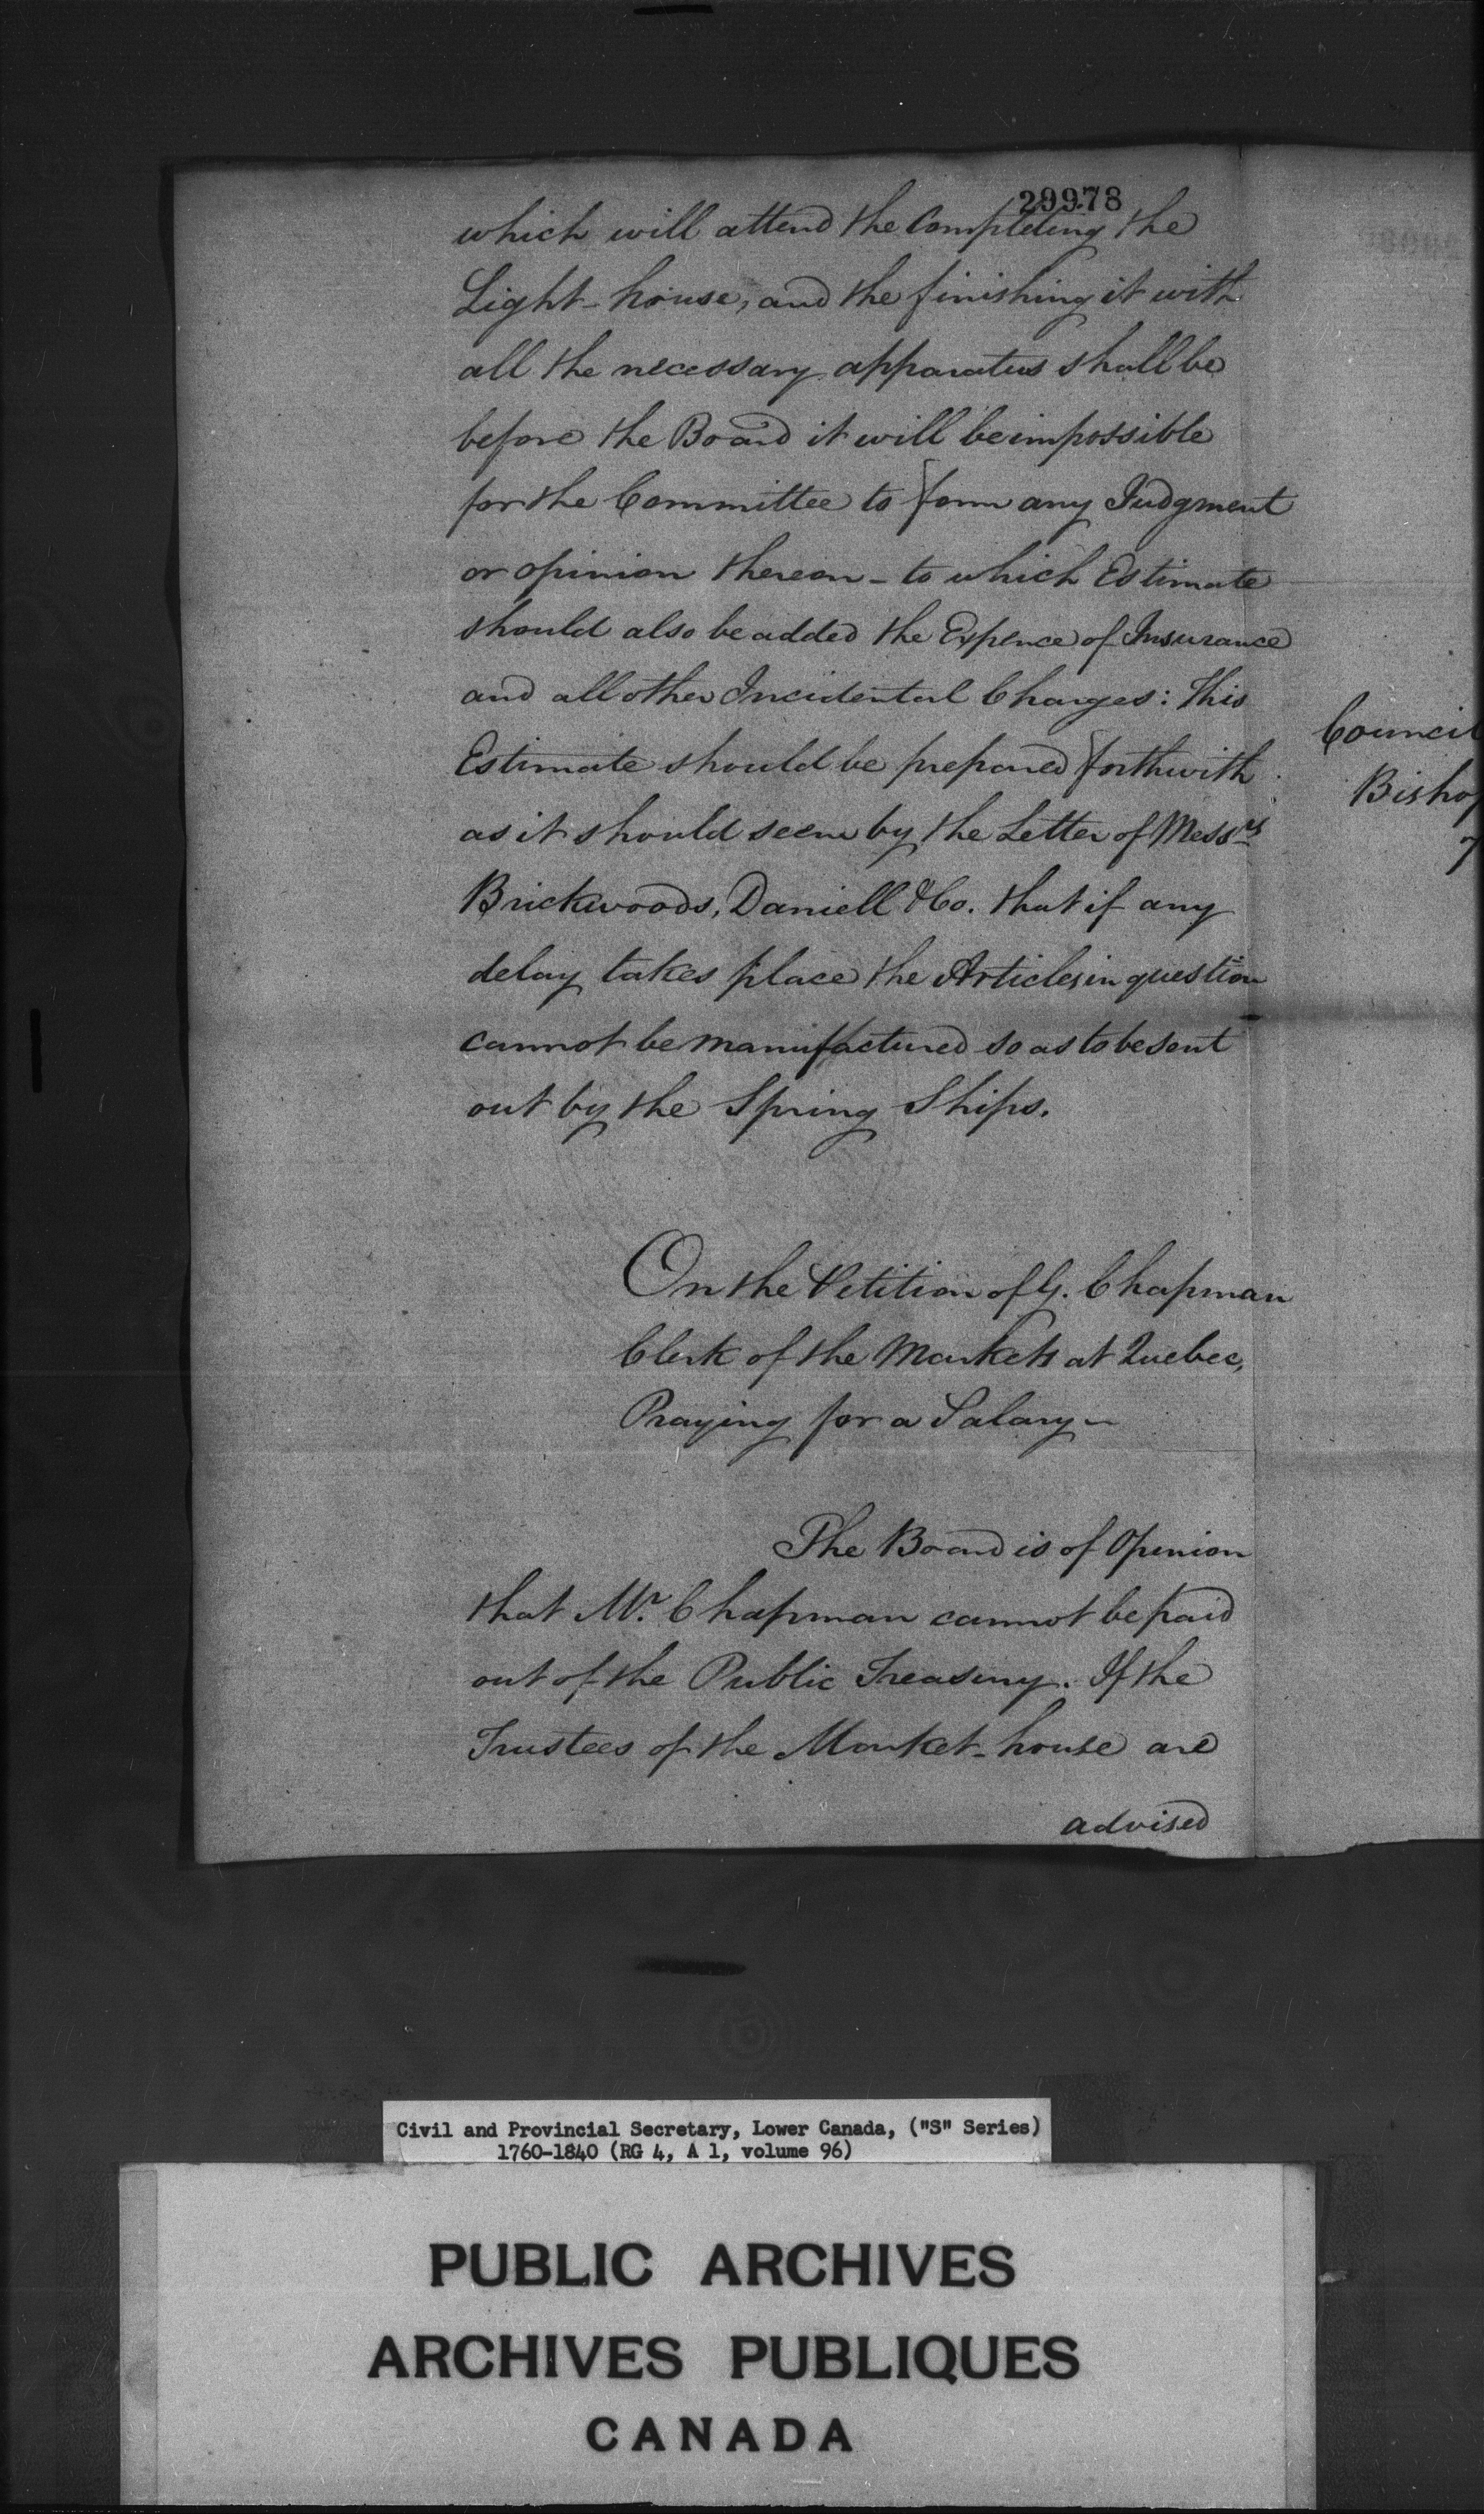 29978
which will attend the Completing the
Light-house, and the finishing it with
all the necessary apparatus shall be
before the Board it will be impossible
for the Committee to form any Judgment
or opinion thereon - to which Estimate
should also be added the Expence of Insurance
and all other Incidental Charges: This
Estimate should be prepared forthwith
as it should seem by the Letter of Messrs
Brickwoods, Daniell & Co. that if any
delay takes place the Articles in question
cannot be manufactured so as to be sent
out by the Spring Ships.
On the Petition of G. Chapman
Clerk of the Markets at Quebec,
Praying for a Salary -
The Board is of Opinion
that Mr. Chapman cannot be paid
out of the Public Treasury. If the
Trustees of the Market-house are
advised
Council
Bishop
Civil and Provincial Secretary, Lower Canada, ("S" Series)
1760-1840 (RG 4, A 1, volume 96)
PUBLIC ARCHIVES
ARCHIVES PUBLIQUES
CANADA